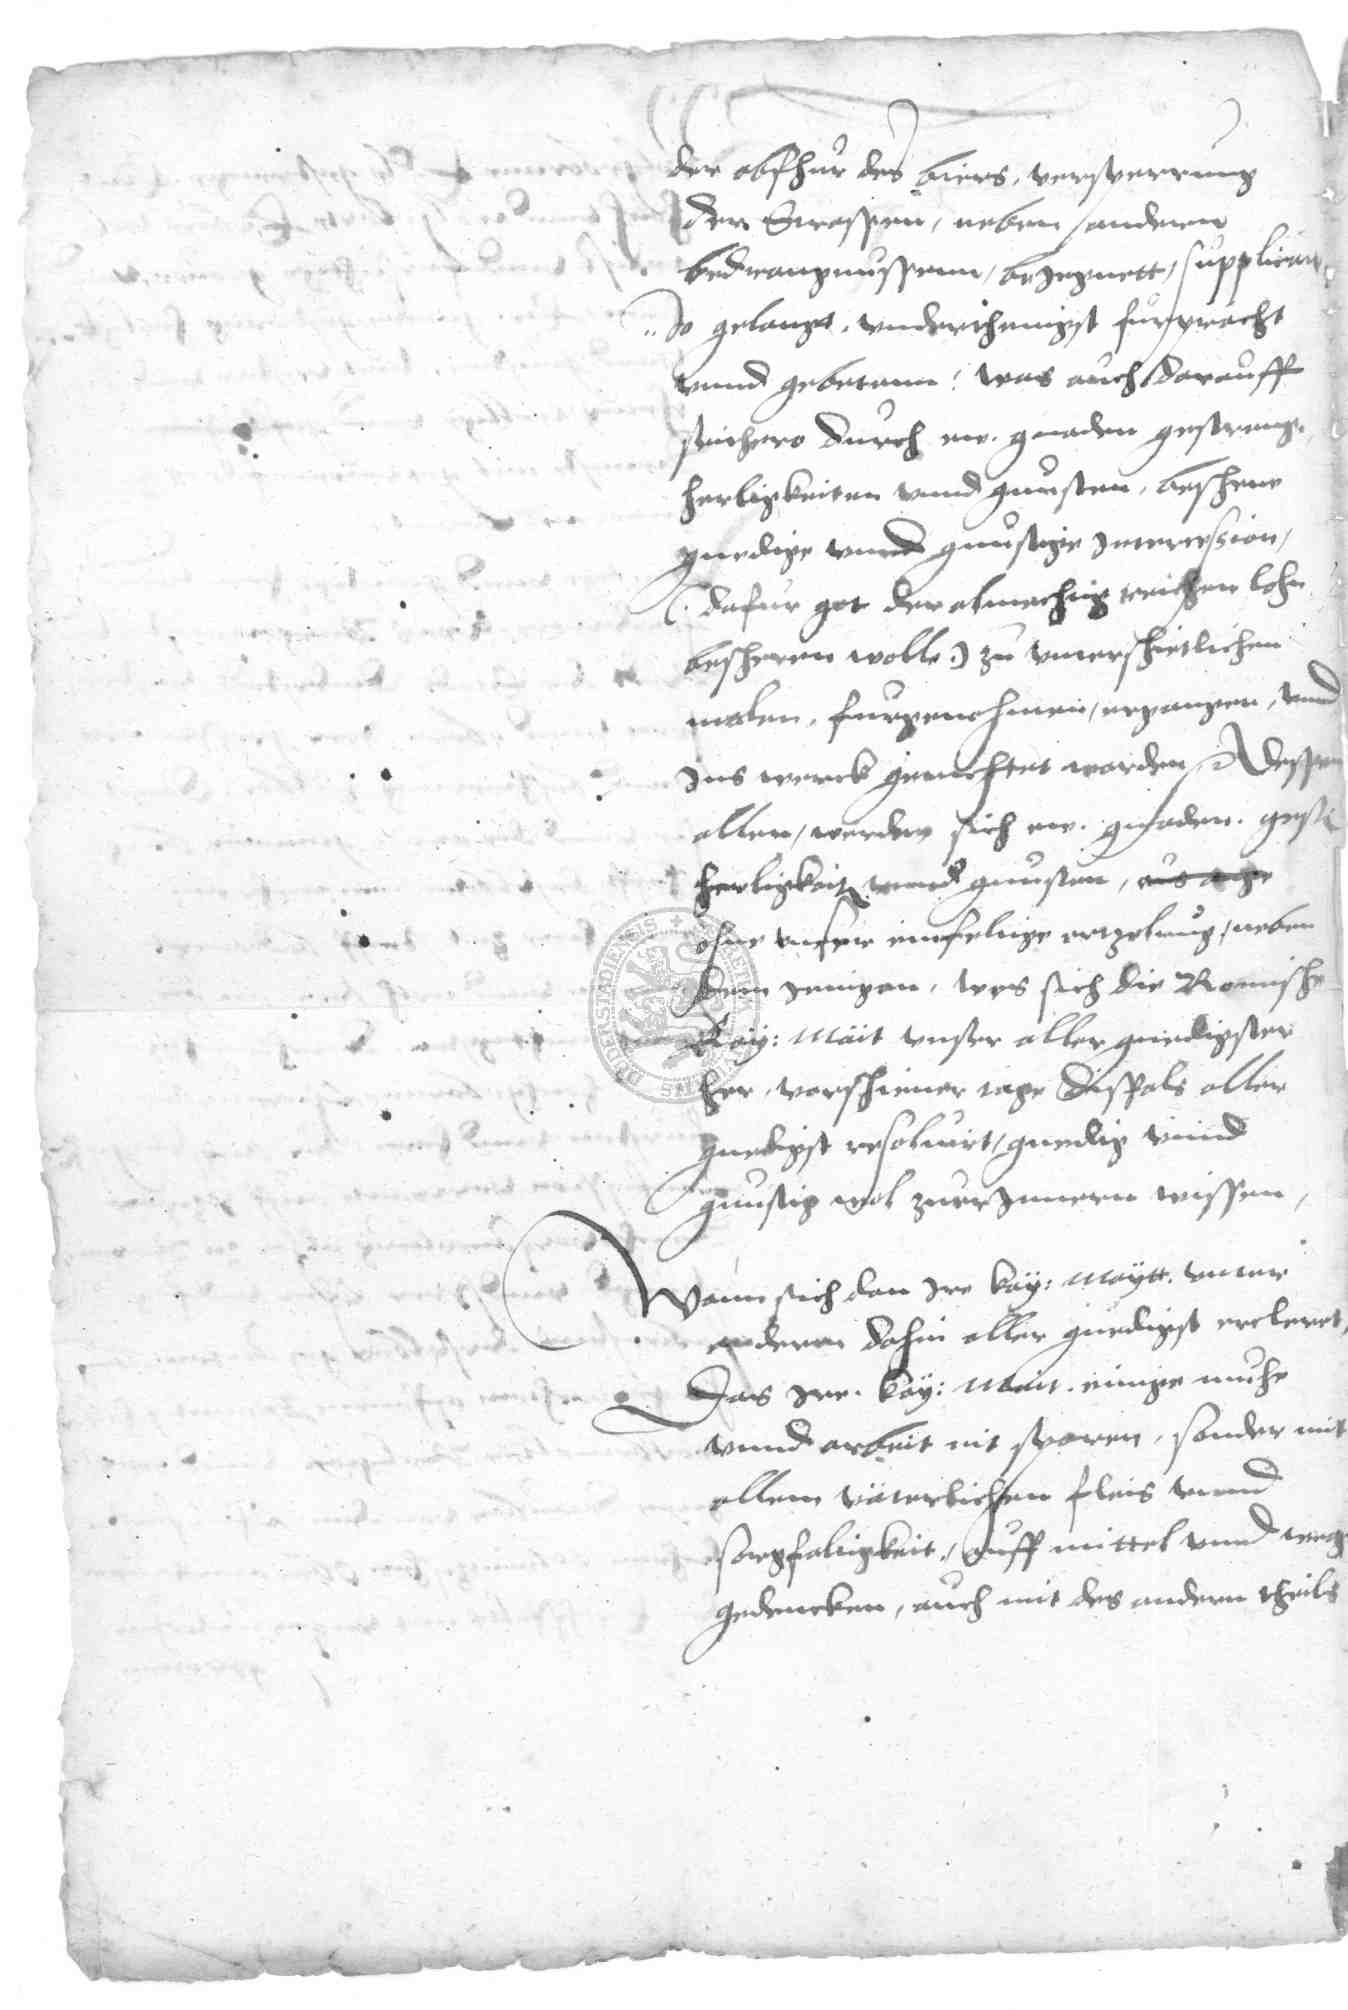 der abfhur des biers, versperrung
der Strassen, neben anderen
bedrangnussenn, bejegnett, supplican
so gelangt, underthenigst fur pracht
unnd gebetenn, was auch darauff
seithero durch ew. gnaden gestreng.
herligkeiten unnd gunsten, beschene
gnedige unnd gunstige Intercession,
(dafur got der almechtig reichen lohn
bescheren wolle) zu unterschietlichen
malen, furgenohmen, ergangen, unnd
Ins werck gerichtet worden, dessen
allen, werden sich ew. gnaden. gest
herligkeit unnd gunsten,
ohne unsere einfeltige ertzelung, neben
dem Jenigen, wes sich die Romische
Kay: Mait unser aller gnedigster
her, vorschiener tage disfals aller
gnedigst resolvirt, gnedig unnd
gunstig wol zuerJnnern wissen,
Wann sich dan Jre kay: Maytt. unter
anderen dahin aller gnedigst ercleret,
Das Jre. kay: Mait. einige muhe
unnd arbeit nit sparen, sonder mit
allem väterlichen fleis unnd
sorgfaltigkeit, auff mittel unnd weg
gedencken, auch mit des andern theils